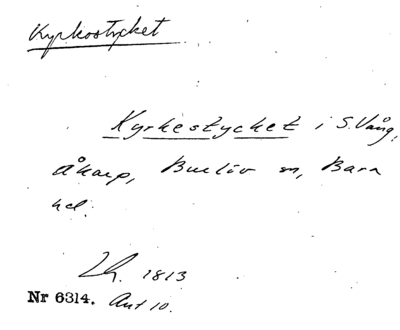 Kyrkostycket
Kyrkestycket i S. Vång,
Åkarp, Burlöv sn, Bara
hd.
Lh. 1813
Nr 6314. Akt 10.